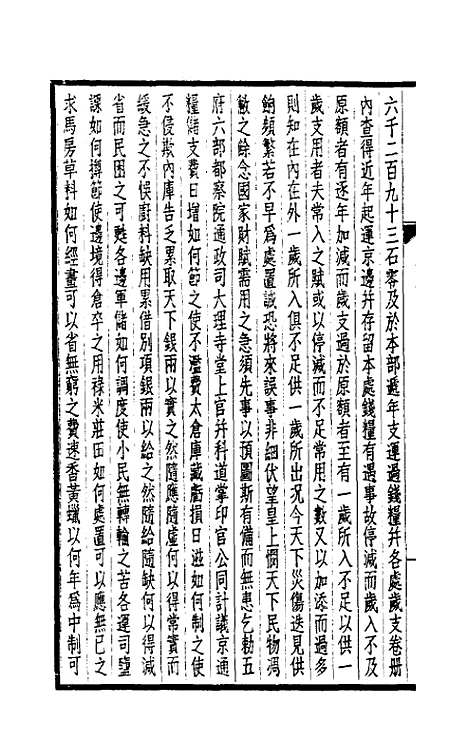 六千二百九十三石零及於本部遞年支運過錢糧并各處歲支卷册
內查得近年起運京邊并存留本處錢糧有遇事故停減而歲入不及
原額者有逐年加減而歲支過於原額者至有一歲所入不足以供一
歲支用者夫常入之賦或以停減而不足常用之數又以加添而過多
則知在內在外一歲所入俱不足供一歲所出況今天下災傷迭見供
餉頻繁若不早爲處置誠恐將來誤事非細伏望皇上憫天下民物凋
敝之餘念國家財賦需用之急須先事以預圖斯有備而無患乞勅五
府六部都察院通政司大理寺堂上官并科道掌印官公同計議京通
糧儲支費日增如何節之使不濫費太倉庫藏虧損日滋如何制之使
不侵欺內庫告乏累取天下銀兩以實之然隨應隨虛何以得常實而
緩急之不悮廚料缺用累借別項銀兩以給之然隨給隨缺何以得減
省而民困之可甦各邊軍儲如何調度使小民無轉輸之苦各運司鹽
課如何撙節使邊境得倉卒之用祿米莊田如何處置可以應無已之
求馬房草料如何經畫可以省無窮之費速香黃蠟以何年爲中制可